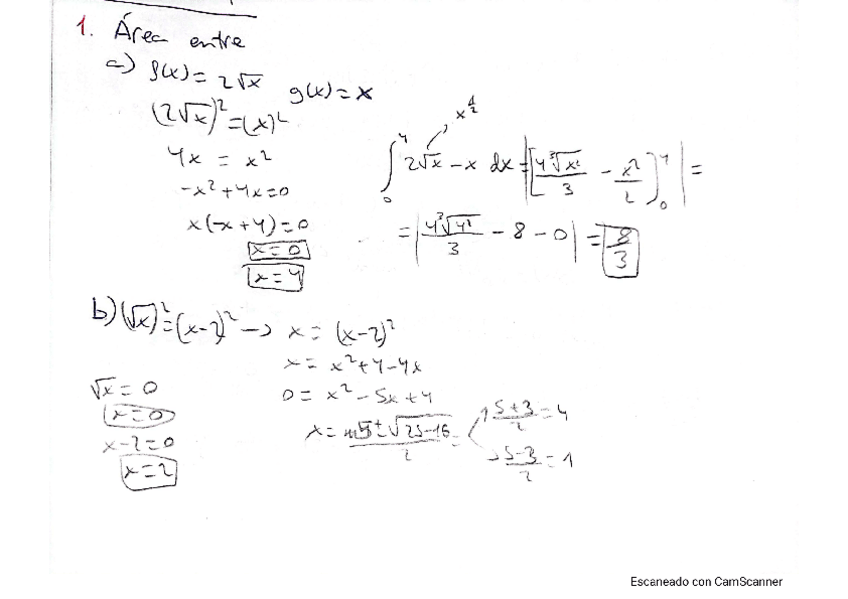 1. Área entre
a) f(x) = 2√x g(x) = x
(2√x)² = (x)²
4x = x²
-x² + 4x = 0
x(-x + 4) = 0
x = 0
x = 4
x^½
∫₀⁴ 2√x - x dx = |[4²√x³/3 - x²/2]₀⁴| =
= |4²√4³/3 - 8 - 0| = 8/3
b) (√x)² = (x-2)² → x = (x-2)²
x = x² + 4 - 4x
0 = x² - 5x + 4
x = 5 ± √25-16 / 2
5+3/2 = 4
5-3/2 = 1
√x = 0
x = 0
x - 2 = 0
x = 2
Escaneado con CamScanner